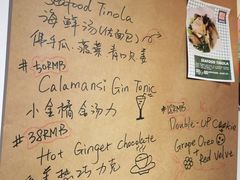 Seafood Tinola
海鲜汤(法面包)
佛手瓜、蔬菜
#50RMB
Calamansi Gin Tonic
小金橘金汤力
#38RMB
Hot Ginger Chocolate
巧力克
SEAFOOD TINOLA
#18RMB
Double-UP Cookie
Grape Oreo
+ Red Valve